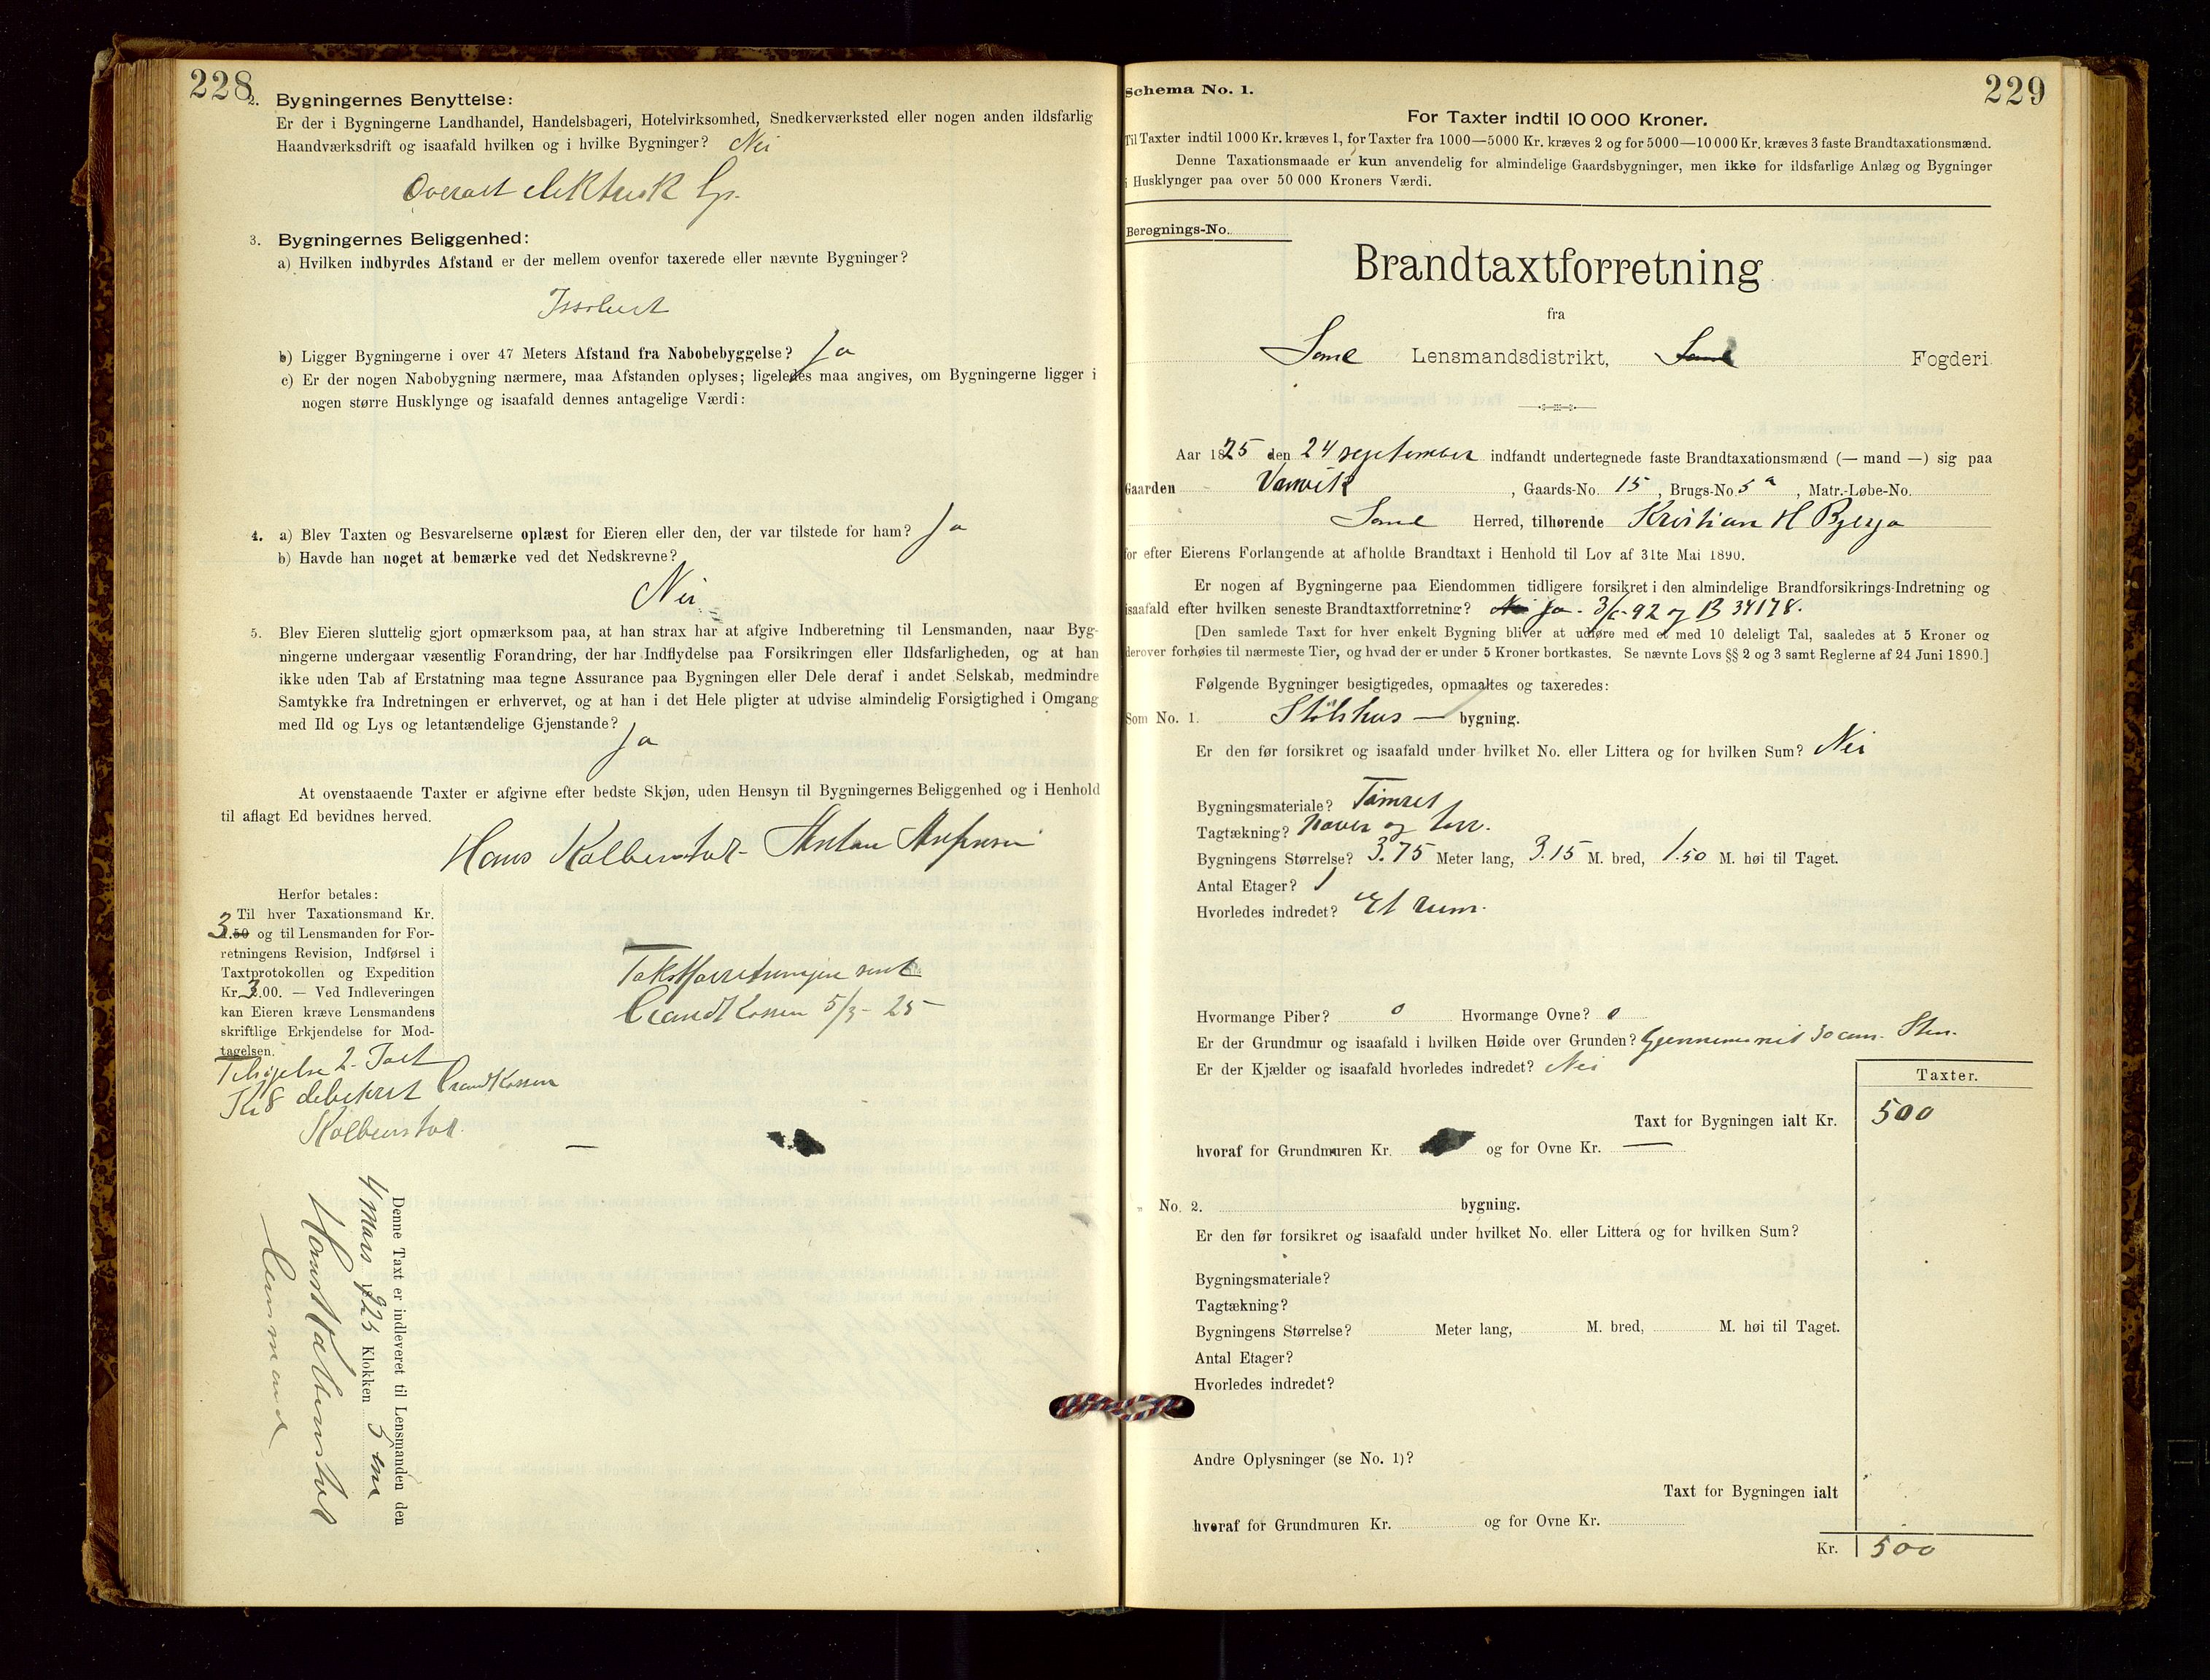 228
2. Bygningernes Benyttelse:
Er der i Bygningerne Landhandel, Handelsbageri, Hotelvirksomhed, Snedkerværksted eller nogen anden ildsfarlig
Haandværksdrift og isaafald hvilken og i hvilke Bygninger? Nei
Overalt elektrisk lys.
3. Bygningernes Beliggenhed:
a) Hvilken indbyrdes Afstand er der mellem ovenfor taxerede eller nævnte Bygninger?
Issolert
b) Ligger Bygningerne i over 47 Meters Afstand fra Nabobebyggelse? Ja
c) Er der nogen Nabobygning nærmere, maa Afstanden oplyses; ligeledes maa angives, om Bygningerne ligger i
nogen større Husklynge og isaafald dennes antagelige Værdi:
4. a) Blev Taxten og Besvarelserne oplæst for Eieren eller den, der var tilstede for ham? Ja
b) Havde han noget at bemærke ved det Nedskrevne?
Nei
5. Blev Eieren sluttelig gjort opmærksom paa, at han strax har at afgive Indberetning til Lensmanden, naar Byg-
ningerne undergaar væsentlig Forandring, der har Indflydelse paa Forsikringen eller Ildsfarligheden, og at han
ikke uden Tab af Erstatning maa tegne Assurance paa Bygningen eller Dele deraf i andet Selskab, medmindre
Samtykke fra Indretningen er erhvervet, og at han i det Hele pligter at udvise almindelig Forsigtighed i Omgang
med Ild og Lys og letantændelige Gjenstande?
Ja
At ovenstaaende Taxter er afgivne efter bedste Skjøn, uden Hensyn til Bygningernes Beliggenhed og i Henhold
til aflagt Ed bevidnes herved.
Hans Kolbenstvt
Herfor betales:
Til hver Taxationsmand Kr.
3.50 og til Lensmanden for For-
retningens Revision, Indførsel i
Taxtprotokollen og Expedition
Kr. 3.00. — Ved Indleveringen
kan Eieren kræve Lensmandens
skriftlige Erkjendelse for Mod-
tagelsen.
Takstforretningen sendt
Brandkassen 5/3 - 25
Kr 8 debitert Brandkassen
Denne Taxt er indleveret til Lensmanden den
4 Mars 1925 Klokken 5 em
Lensmand
229
Schema No. 1.
For Taxter indtil 10 000 Kroner.
Til Taxter indtil 1000 Kr. kræves 1, for Taxter fra 1000—5000 Kr. kræves 2 og for 5000—10 000 Kr. kræves 3 faste Brandtaxationsmænd.
Denne Taxationsmaade er kun anvendelig for almindelige Gaardsbygninger, men ikke for ildsfarlige Anlæg og Bygninger
i Husklynger paa over 50 000 Kroners Værdi.
Beregnings-No.
Brandtaxtforretning
fra
Sand Lensmandsdistrikt, Sand Fogderi
Aar 1825 den 24 september indfandt undertegnede faste Brandtaxationsmænd (— mand —) sig paa
Gaarden Vanvik, Gaards-No. 15, Brugs-No. 5 a, Matr.-Løbe-No.
Sand Herred, tilhørende Kristian H
for efter Eierens Forlangende at afholde Brandtaxt i Henhold til Lov af 31te Mai 1890.
Er nogen af Bygningerne paa Eiendommen tidligere forsikret i den almindelige Brandforsikrings-Indretning og
isaafald efter hvilken seneste Brandtaxtforretning? Nei Ja - 3/6-92 og B 34178.
[Den samlede Taxt for hver enkelt Bygning bliver at udføre med et med 10 deleligt Tal, saaledes at 5 Kroner og
derover forhøies til nærmeste Tier, og hvad der er under 5 Kroner bortkastes. Se nævnte Lovs §§ 2 og 3 samt Reglerne af 24 Juni 1890.]
Følgende Bygninger besigtigedes, opmaaltes og taxeredes:
Som No. 1. Stølshus — bygning.
Er den før forsikret og isaafald under hvilket No. eller Littera og for hvilken Sum? Nei
Bygningsmateriale? Tømret
Tagtækning? Næver og torv.
Bygningens Størrelse? 3.75 Meter lang, 3.15 M. bred, 1.50 M. høi til Taget.
Antal Etager? 1
Hvorledes indredet? Et rum.
Hvormange Piber? 0 Hvormange Ovne? 0
Er der Grundmur og isaafald i hvilken Høide over Grunden? Gjennemsnit 30 cm. Sten.
Er der Kjælder og isaafald hvorledes indredet? Nei
Taxter.
Taxt for Bygningen ialt Kr. 500
hvoraf for Grundmuren Kr. og for Ovne Kr. —
" No. 2. bygning.
Er den før forsikret og isaafald under hvilket No. eller Littera og for hvilken Sum?
Bygningsmateriale?
Tagtækning?
Bygningens Størrelse? Meter lang, M. bred, M. høi til Taget.
Antal Etager?
Hvorledes indredet?
Andre Oplysninger (se No. 1)?
Taxt for Bygningen ialt
hvoraf for Grundmuren Kr. og for Ovne Kr.
Kr. 500